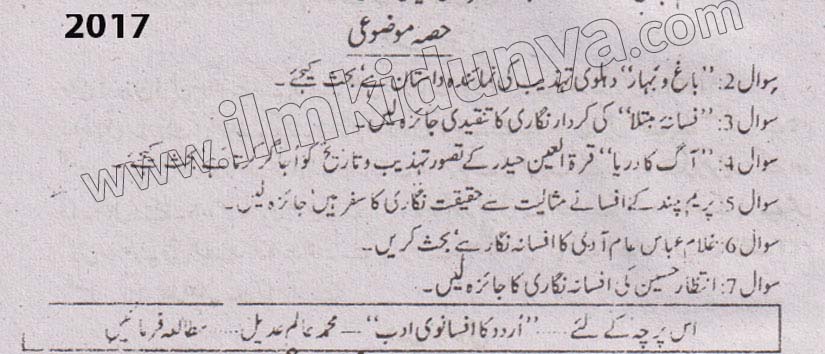 2017
حصہ موضوعی
سوال 2: ’’باغ و بہار‘‘ دہلوی تہذیب کی نمائندہ داستان ہے‘ بحث کیجئے۔
سوال 3: ’’فسانۂ مبتلا‘‘ کی کردار نگاری کا تنقیدی جائزہ لیں۔
سوال 4: ’’آگ کا دریا‘‘ قرۃ العین حیدر کے تصور تہذیب و تاریخ کو اجاگر کرتا ہے بحث کیجئے۔
سوال 5: پریم چند کے افسانے مثالیت سے حقیقت نگاری کا سفر ہیں‘ جائزہ لیں۔
سوال 6: غلام عباس عام آدمی کا افسانہ نگار ہے‘ بحث کریں۔
سوال 7: انتظار حسین کی افسانہ نگاری کا جائزہ لیں۔
اس پرچہ کے لئے ..... ’’اُردو کا افسانوی ادب‘‘ — محمد عالم عدیل ..... مطالعہ فرمائیں
www.ilmkidunya.com